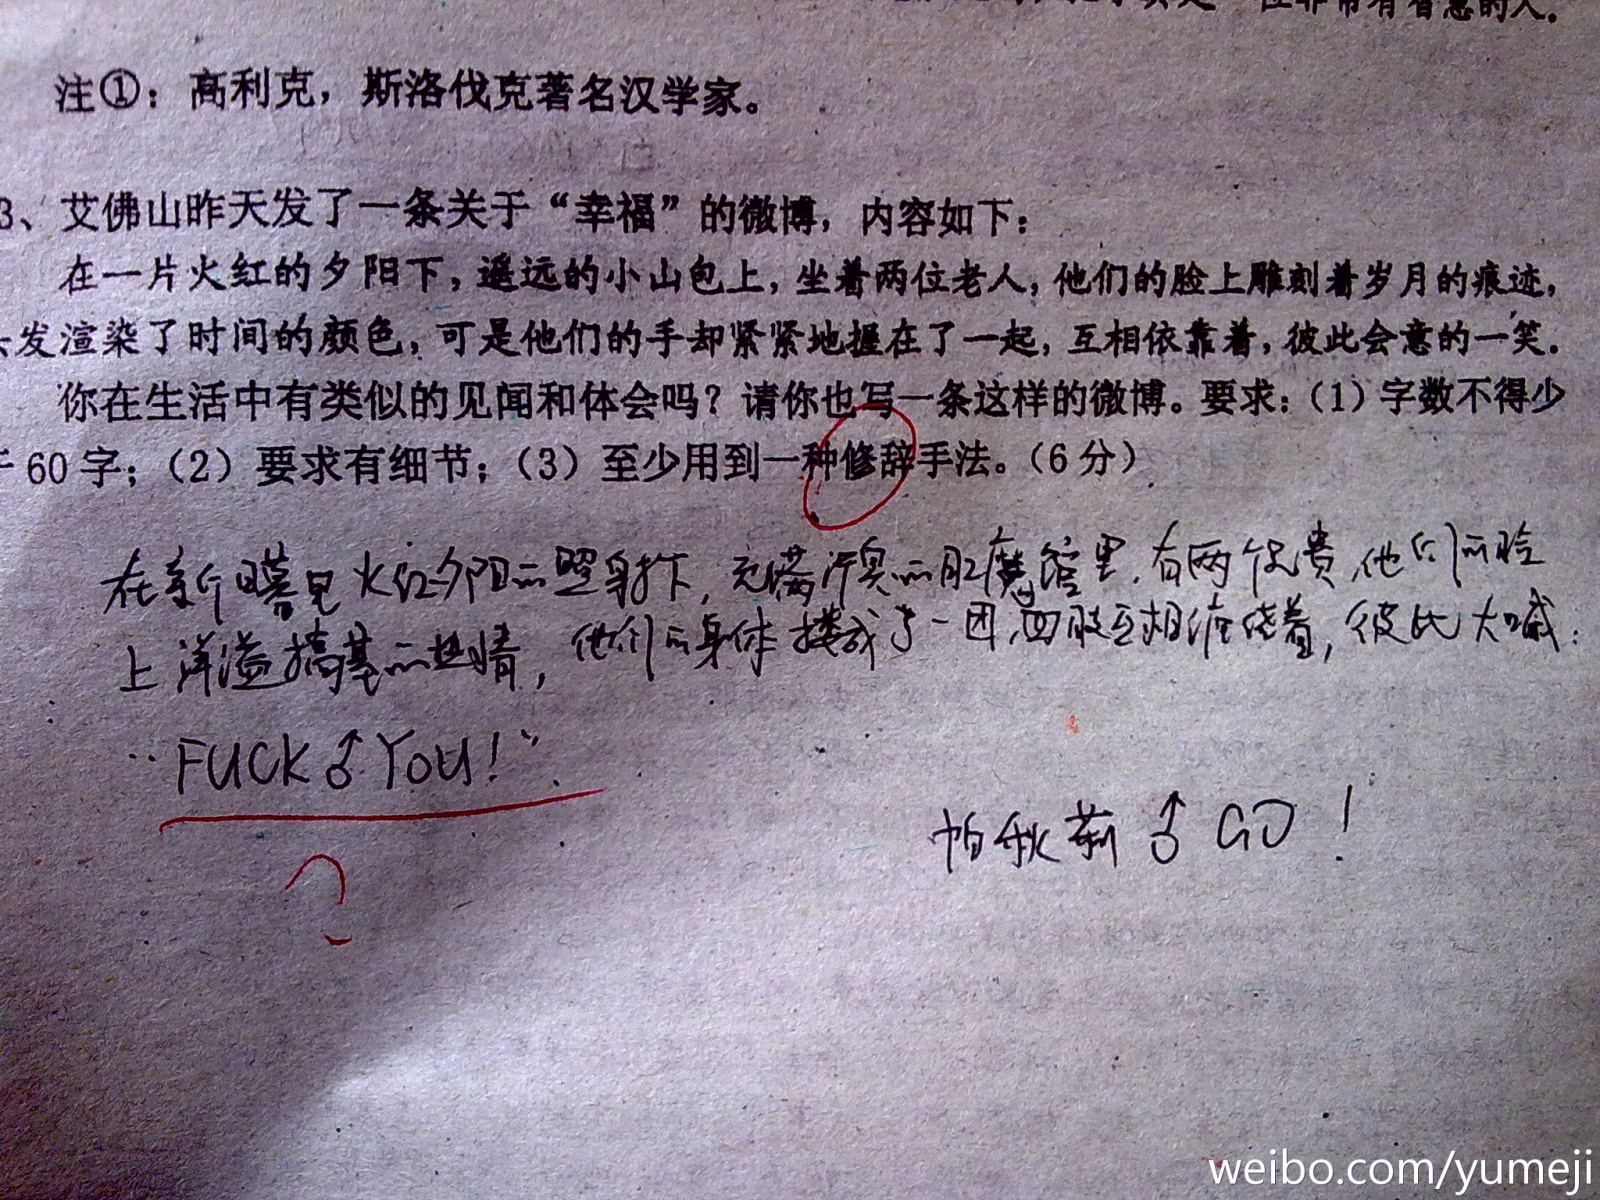 一位非常有智慧的人.
注①：高利克，斯洛伐克著名汉学家。
3、艾佛山昨天发了一条关于“幸福”的微博，内容如下：
在一片火红的夕阳下，遥远的小山包上，坐着两位老人，他们的脸上雕刻着岁月的痕迹，
头发渲染了时间的颜色，可是他们的手却紧紧地握在了一起，互相依靠着，彼此会意的一笑.
你在生活中有类似的见闻和体会吗？请你也写一条这样的微博。要求：（1）字数不得少
于60字；（2）要求有细节；（3）至少用到一种修辞手法。（6分）
在新日暮里火红夕阳的照射下，充满汗臭的肛魔馆里，有两个兄贵，他们的脸
上洋溢搞基的热情，他们的身体搂成了一团，四肢互相缠绕着，彼此大喊：
“FUCK♂YOU！”.
帕秋莉♂GO！
weibo.com/yumeji